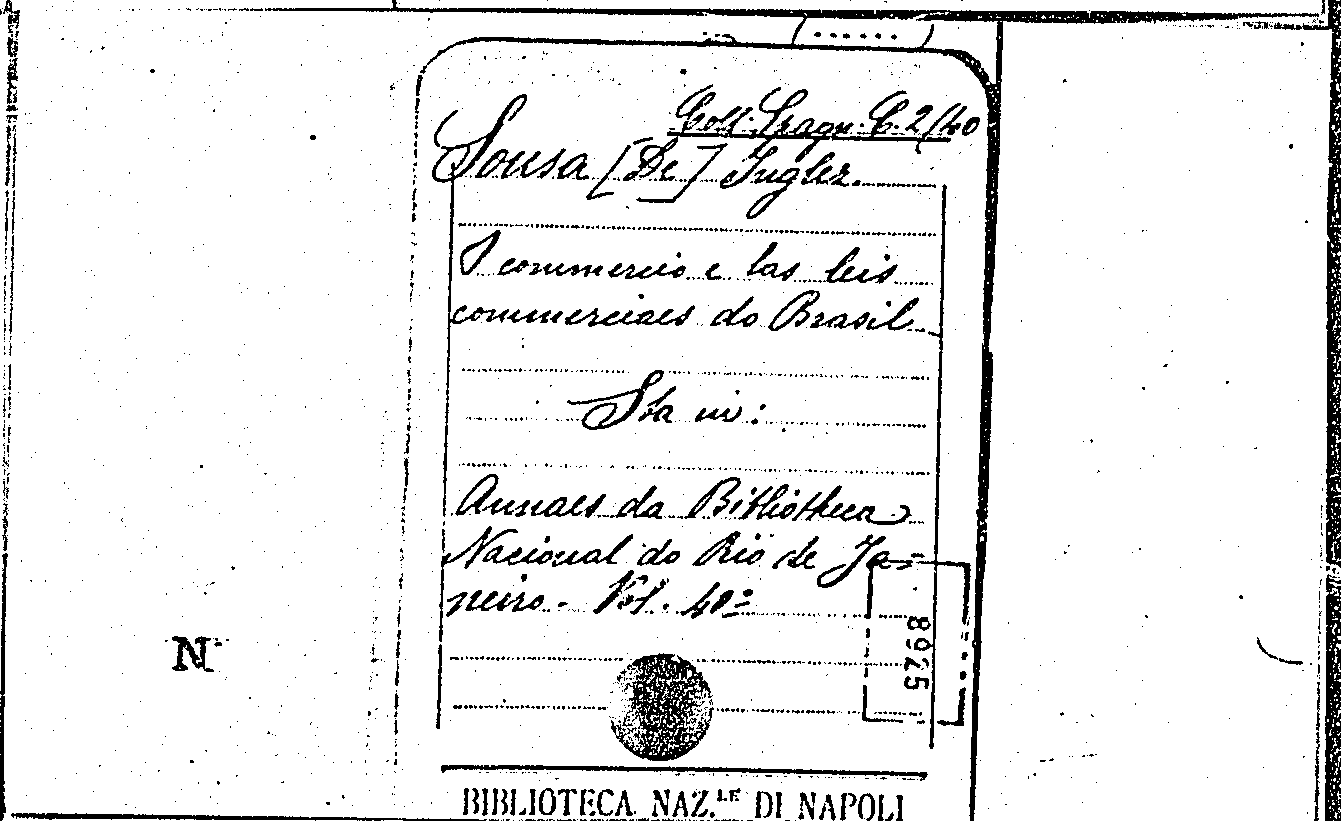 Coll. Spagn. C. 2/40
Sousa [De] Inglez.
O commercio e las leis
commerciaes do Brasil
Sta in:
Annaes da Bibliotheca
Nacional do Rio de Ja-
neiro. Vol. 40º
8925
N
BIBLIOTECA NAZ.LE DI NAPOLI